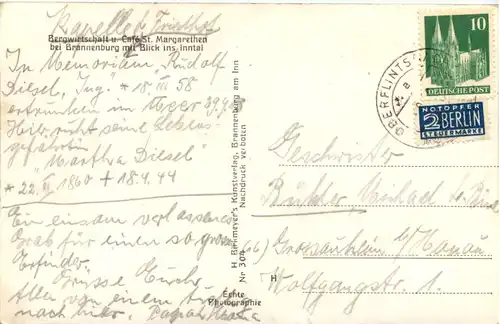 Kapelle & Friedhof
Bergwirtschaft u. Café St. Margarethen
bei Brannenburg mit Blick ins Inntal
In Memoriam "Rudolf
Diesel, Ing" * 18. III 58
ertrunken im Meer
Hier ruht seine Lebens-
gefährtin
"Martha Diesel"
* 22. 1860 + 18.4.44
Ein einsam verlassenes
Grab für einen so grossen
Erfinder.
Grüsse Euch
Allen von einem
nach hier.
H. Bernmeyer's Kunstverlag, Brannenburg am Inn
Nachdruck verboten
Nr 304
Echte
Photographie
10
DEUTSCHE POST
NOTOPFER
2 BERLIN
STEUERMARKE
OBERFLINTS
Geschwister
Bücher Michael
(16) Grossauheim b/Hanau
H
Wolfgangstr. 1.